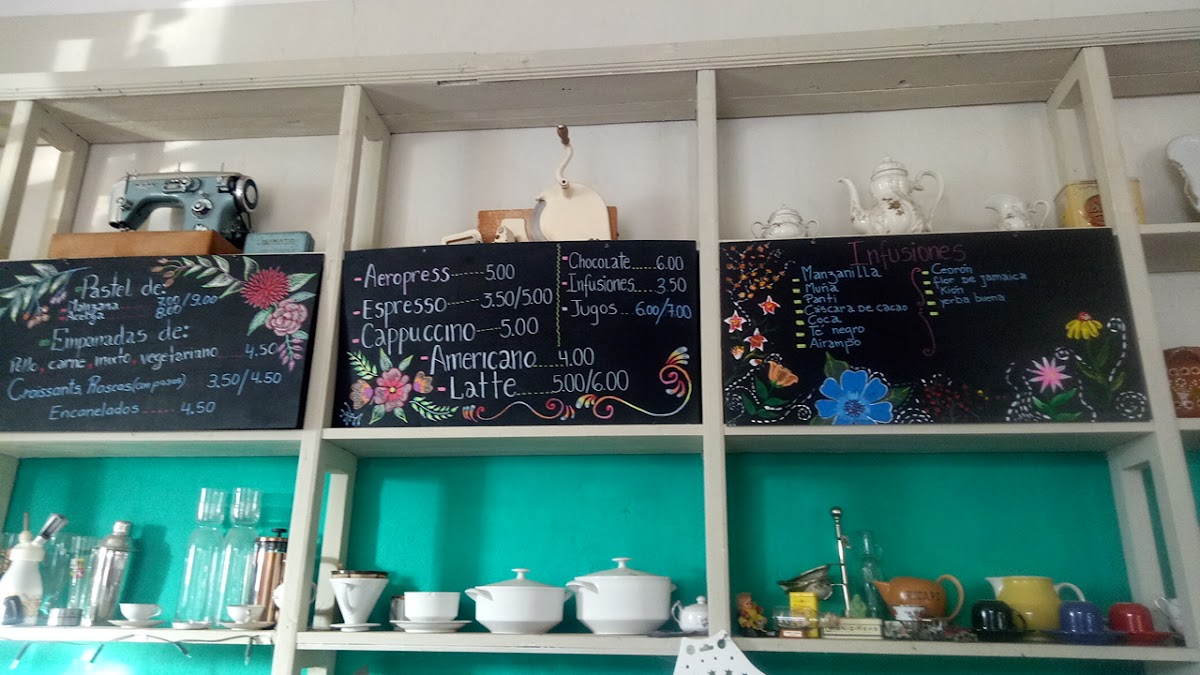 Pastel de:
- Manzana 7.00/9.00
- Acelga 8.00
Empanadas de:
Pollo, carne, mixto, vegetariano ..... 4.50
Croissants, Roscas (con pasas) 3.50/4.50
Encanelados ...... 4.50
- Aeropress ....... 5.00
- Espresso ...... 3.50/5.00
- Cappuccino .... 5.00
- Americano .... 4.00
- Latte ....... 5.00/6.00
- Chocolate ...... 6.00
- Infusiones .... 3.50
- Jugos ... 6.00/7.00
Infusiones
Manzanilla
Muña
Panti
Cáscara de cacao
Coca
Te negro
Airampo
Cedrón
flor de jamaica
Kion
yerba buena
RICARD